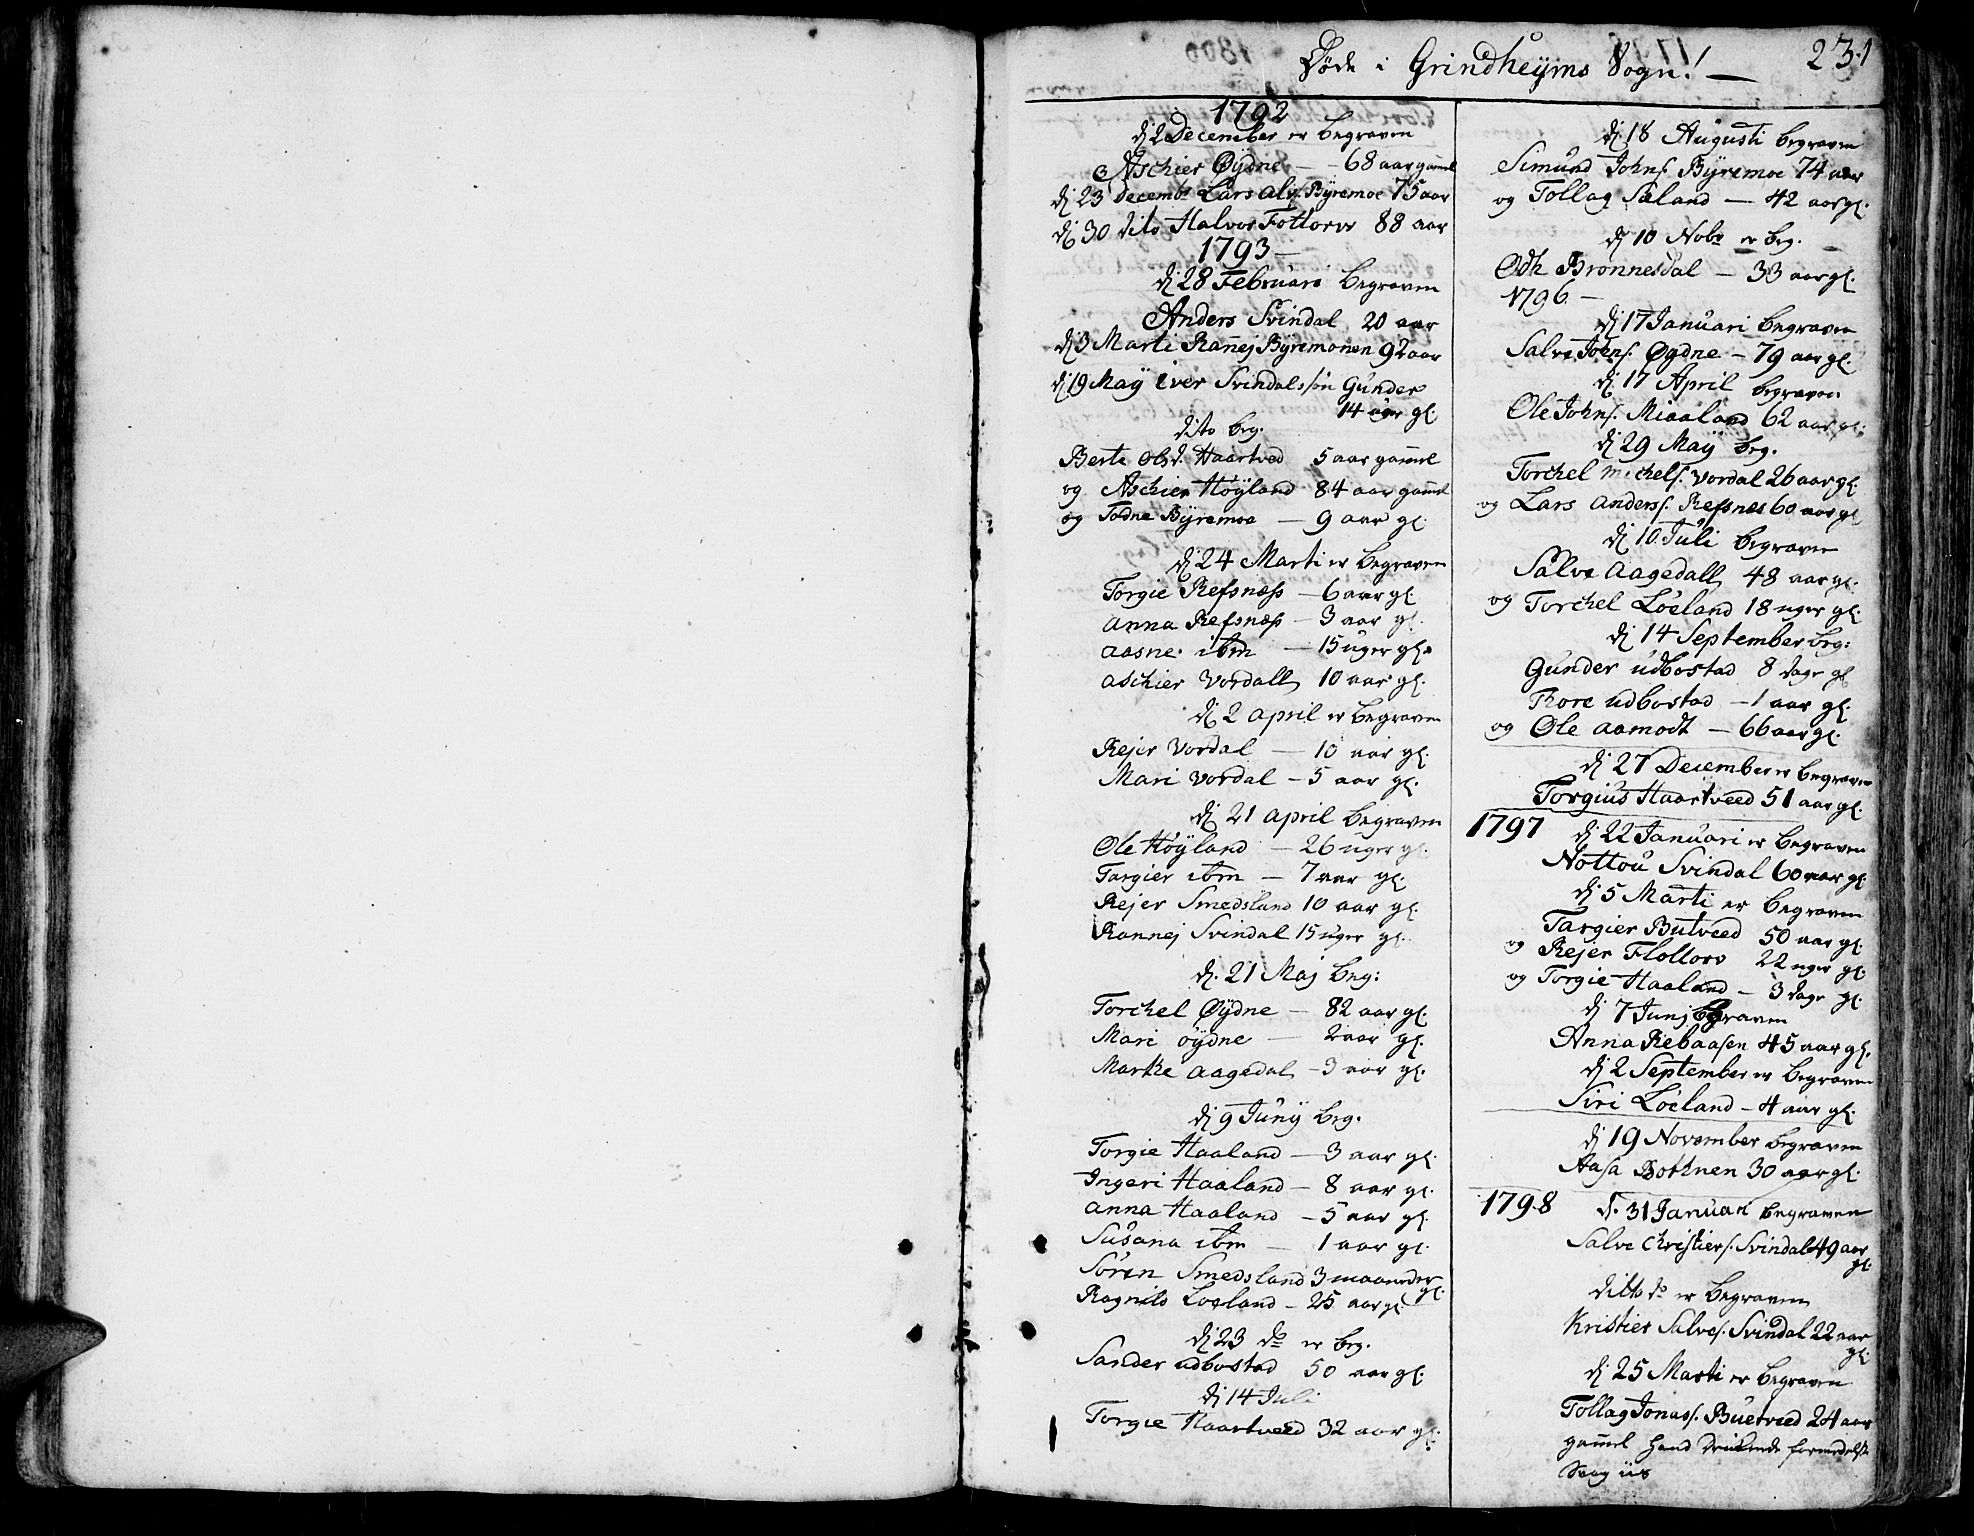 Døde i Grindheyms Sogn! —
231
1792
dj 2 December er begraven
Aschier Øÿdne — 68 aar gamel
dj 23 Decembr Lars Alfs. Bÿremoe 75 aar
dj 30 dito Halvor Fottorv 88 aar
1793 —
dj 28 Februari begraven
Anders Svindal 20 aar
dj 3 Marti Ranej Bÿremonen 92 aar
dj 19 Maÿ Iver Svindals søn Gunder
14 uger gl.
dito beg.
Berte Olsd. Haartved 5 aar gamel
og Aschier Høÿland 84 aar gamel
og Todne Bÿremoe — 9 aar gl.
dj 24 Marti er begraven
Torgie Refsnæss — 6 aar gl.
Anna Refsnæss — 3 aar gl.
Aasne ibm — 15 uger gl.
Aschier Vordall 10 aar gl.
dj 2 April er begraven
Rejer Vordal — 10 aar gl.
Mari Vordal — 5 aar gl.
dj 21 April begraven
Ole Høÿland — 26 uger gl.
Targier ibm — 7 aar gl.
Rejer Smedsland 10 aar gl.
Rannej Svindal 15 uger gl.
d. 21 Maj beg:
Torchel Øÿdne — 82 aar gl.
Mari øÿdne — 2 aar gl.
Marthe Aagedal — 3 aar gl.
dj 9 Junÿ beg.
Torgie Haaland — 3 aar gl.
Ingeri Haaland — 8 aar gl.
Anna Haaland — 5 aar gl.
Susana ibm — 1 aar gl.
Søren Smedsland 3 maaneder gl.
Ragnild Loeland — 25 aar gl.
dj 23 do er beg.
Sander udbostad 50 aar gl.
dj 14 Juli
Torgie Haartveed 32 aar gl.
dj 18 Augusti begraven
Simund Johns. Bÿremoe 74 aar
og Tollag Sæland — 42 aar gl.
dj 10 Nobr er beg.
Odh Brønnesdal — 33 aar gl.
1796 —
dj 17 Januari begraven
Salve Johns. Øydne — 79 aar gl.
dj 17 April begraven
Ole Johns. Miaaland 62 aar gl.
dj 29 Maÿ beg.
Torchel Michels. Vordal 26 aar gl.
og Lars Anderss. Refsnes 60 aar gl
dj 10 Juli begraven
Salve Aagedall 48 aar gl.
og Torchel Løeland 18 uger gl.
dj 14 September beg:
Gunder udbostad 8 dage gl
Thore udbostad — 1 aar gl.
og Ole Aamodt — 66 aar gl.
dj 27 December er begraven
Torgius Haartveed 51 aar gl.
1797 dj 22 Januari er begraven
Nottou Svindal 60 aar gl.
dj 5 Marti er begraven
Targier Butveed 50 aar gl.
og Rejer Flottorv 22 uger gl.
og Torgie Haaland — 3 dage gl.
dj 7 Junj begraven
Anna Rebaasen 45 aar gl.
dj 2 September er begraven
Siri Løeland — 4 aar gl.
dj 19 November begraven
Aasa Bothnen 30 aar gl.
1798 d. 31 Januari begraven
Salve Christiers. Svindal 49 aar
gl.
ditto do er begraven
Kristier Salves. Svindal 22 aar
gl.
dj 25 Marti er begraven
Tollag Jonass. Buetveed 24 aar
gamel hand druknede formedelst
Svag iis